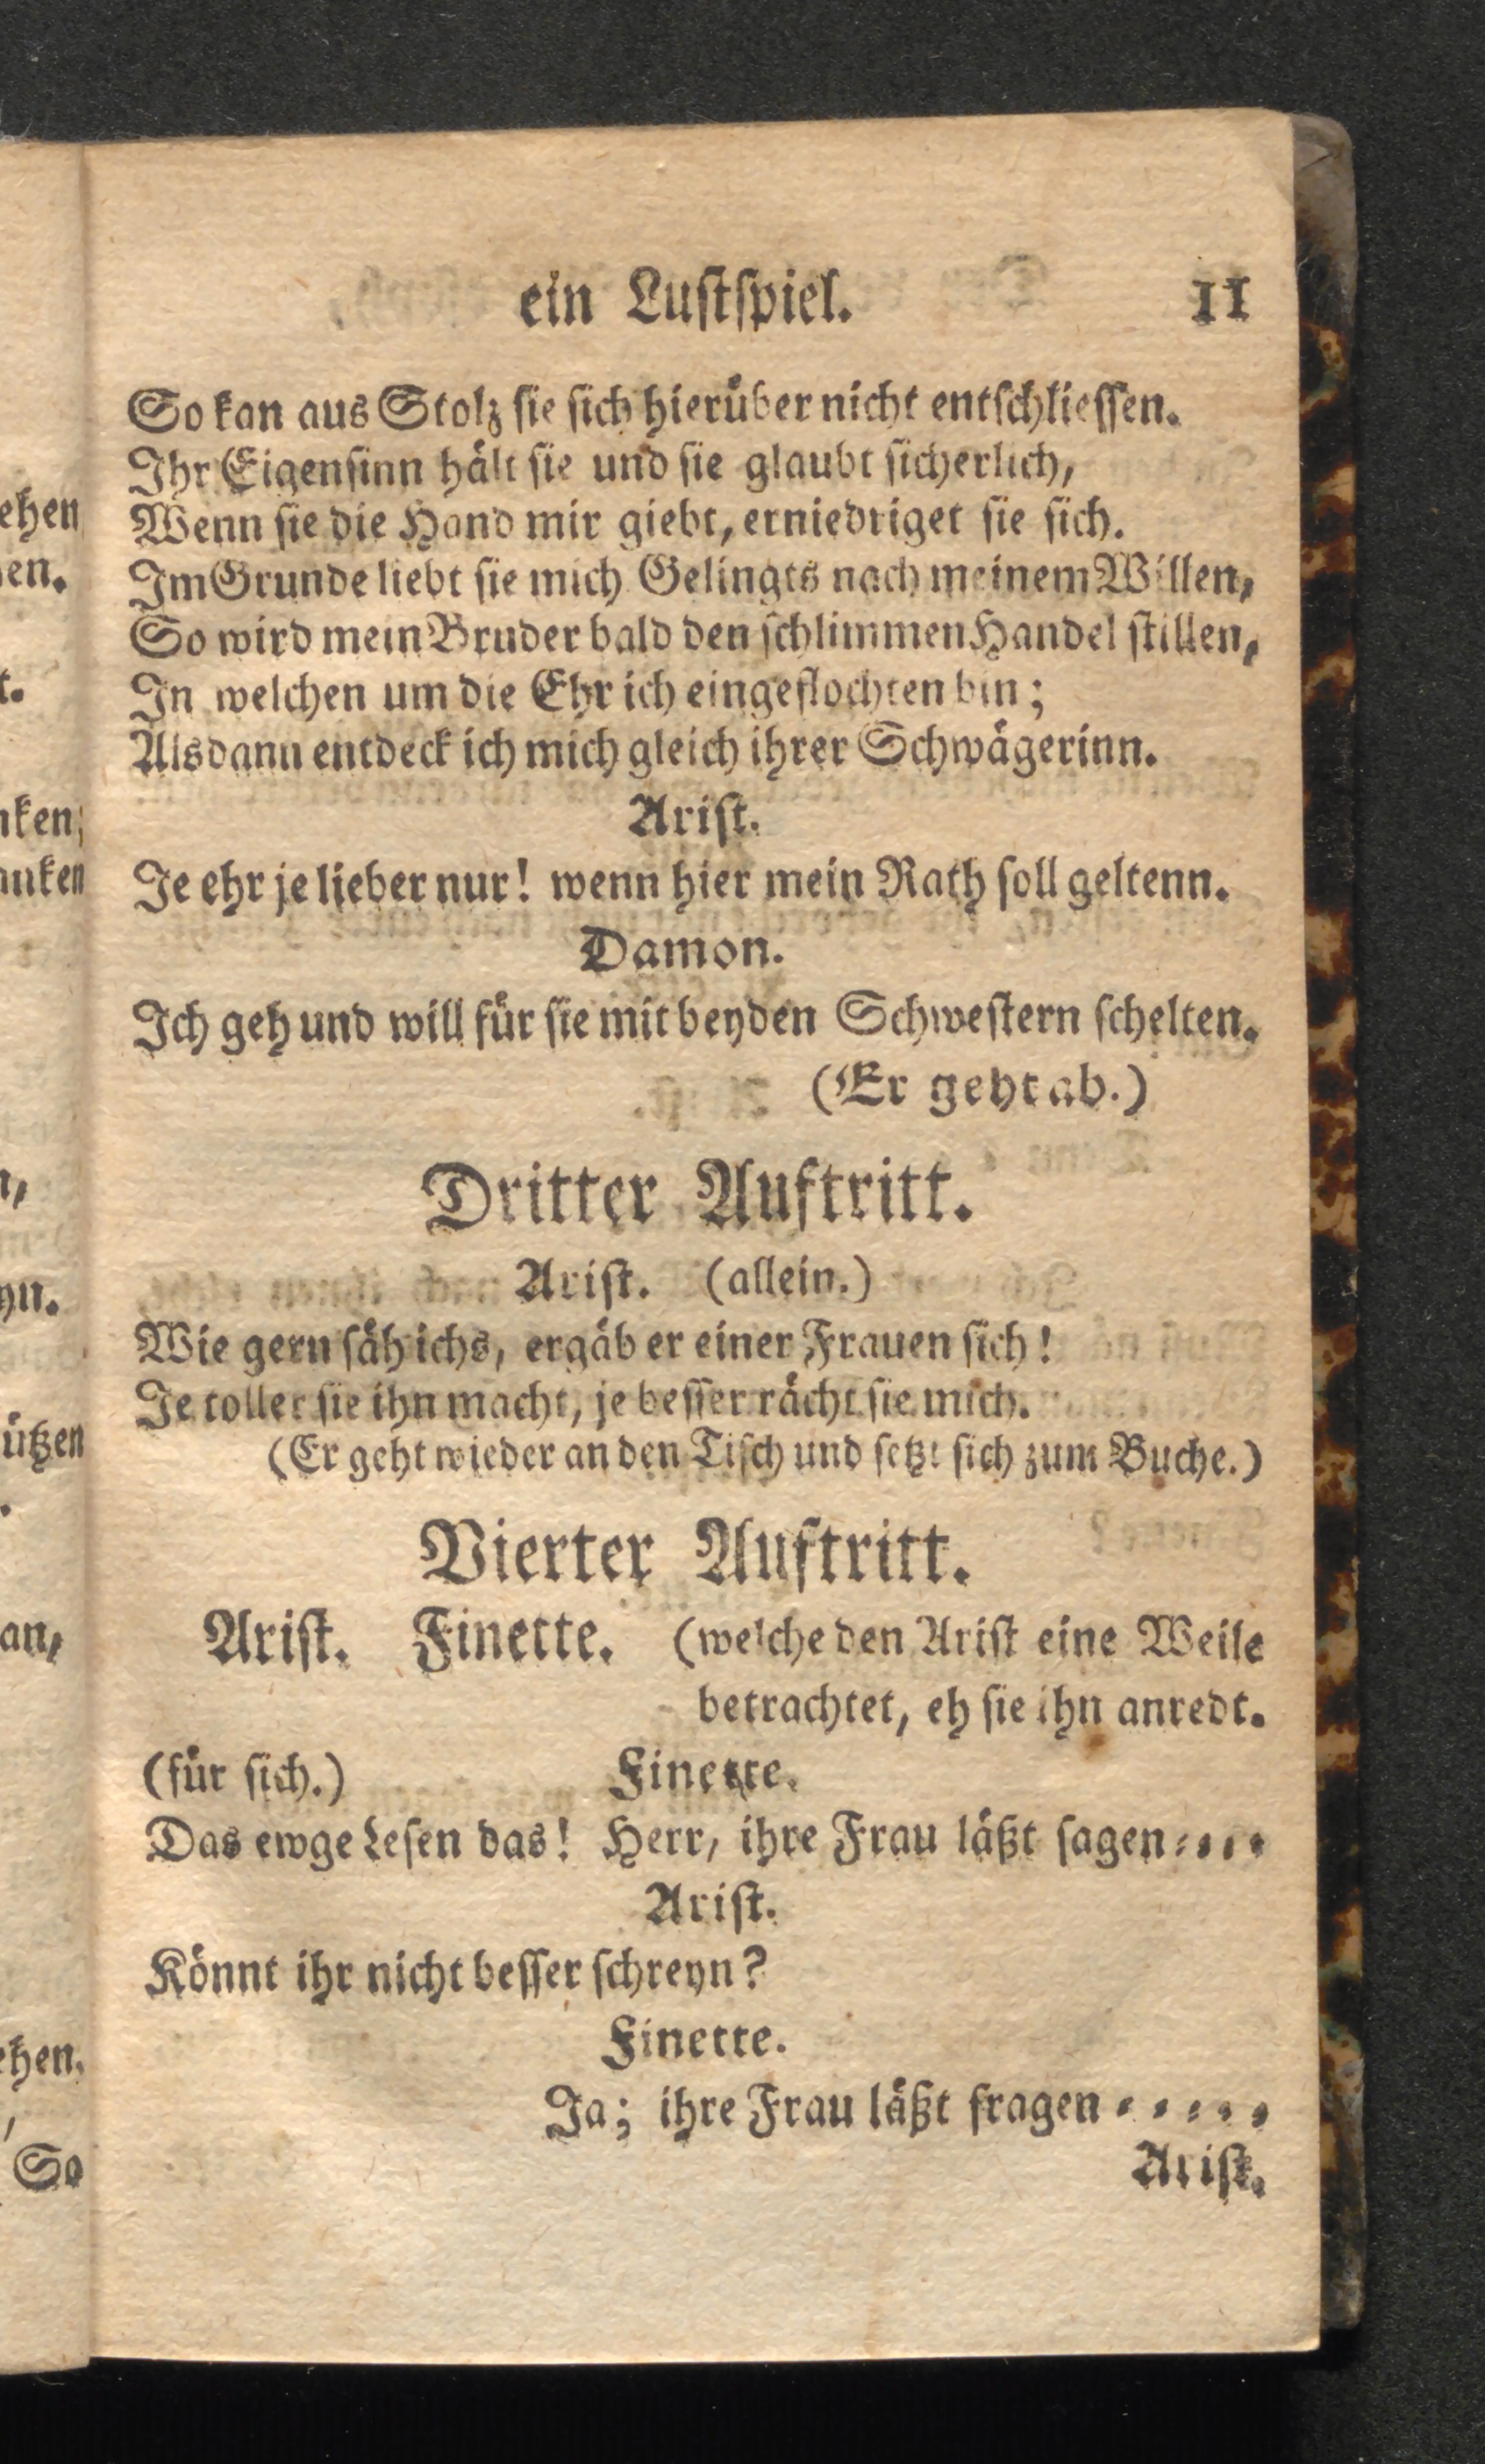 ein Lustspiel. 11
So kan aus Stolz sie sich hierüber nicht entschliessen.
Ihr Eigensinn hält sie und sie glaubt sicherlich,
Wenn sie die Hand mir giebt, erniedriget sie sich.
Im Grunde liebt sie mich Gelingts nach meinem Willen,
So wird mein Bruder bald den schlimmen Handel stillen,
In welchen um die Ehr ich eingeflochten bin;
Alsdann entdeck ich mich gleich ihrer Schwägerinn.
Arist.
Je ehr je lieber nur! wenn hier mein Rath soll geltenn.
Damon.
Ich geh und will für sie mit beyden Schwestern schelten.
(Er geht ab.)
Dritter Auftritt.
Arist. (allein.)
Wie gern säh ichs, ergäb er einer Frauen sich!
Je toller sie ihn macht, je besser rächt sie mich.
(Er geht wieder an den Tisch und setzt sich zum Buche.)
Vierter Auftritt.
Arist. Finette. (welche den Arist eine Weile
betrachtet, eh sie ihn anredt.
(für sich.) Finette.
Das ewge Lesen das! Herr, ihre Frau läßt sagen⸗⸗⸗⸗
Arist.
Könnt ihr nicht besser schreyn?
Finette.
Ja; ihre Frau läßt fragen ⸗ ⸗ ⸗ ⸗ ⸗
Arist.
ehen
en.
t.
ken;
anken
n,
yn.
ützen
.
an,
ehen.
,
So